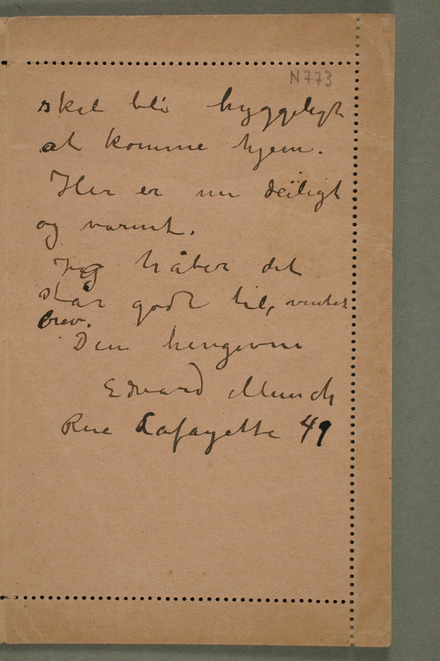 N773
skal bli hyggeligt
at komme hjem.
Her er nu deiligt
og varmt.
Jeg håber det
står godt til, ventes
brev.
Din hengivne
Edvard Munch
Rue Lafayette 49